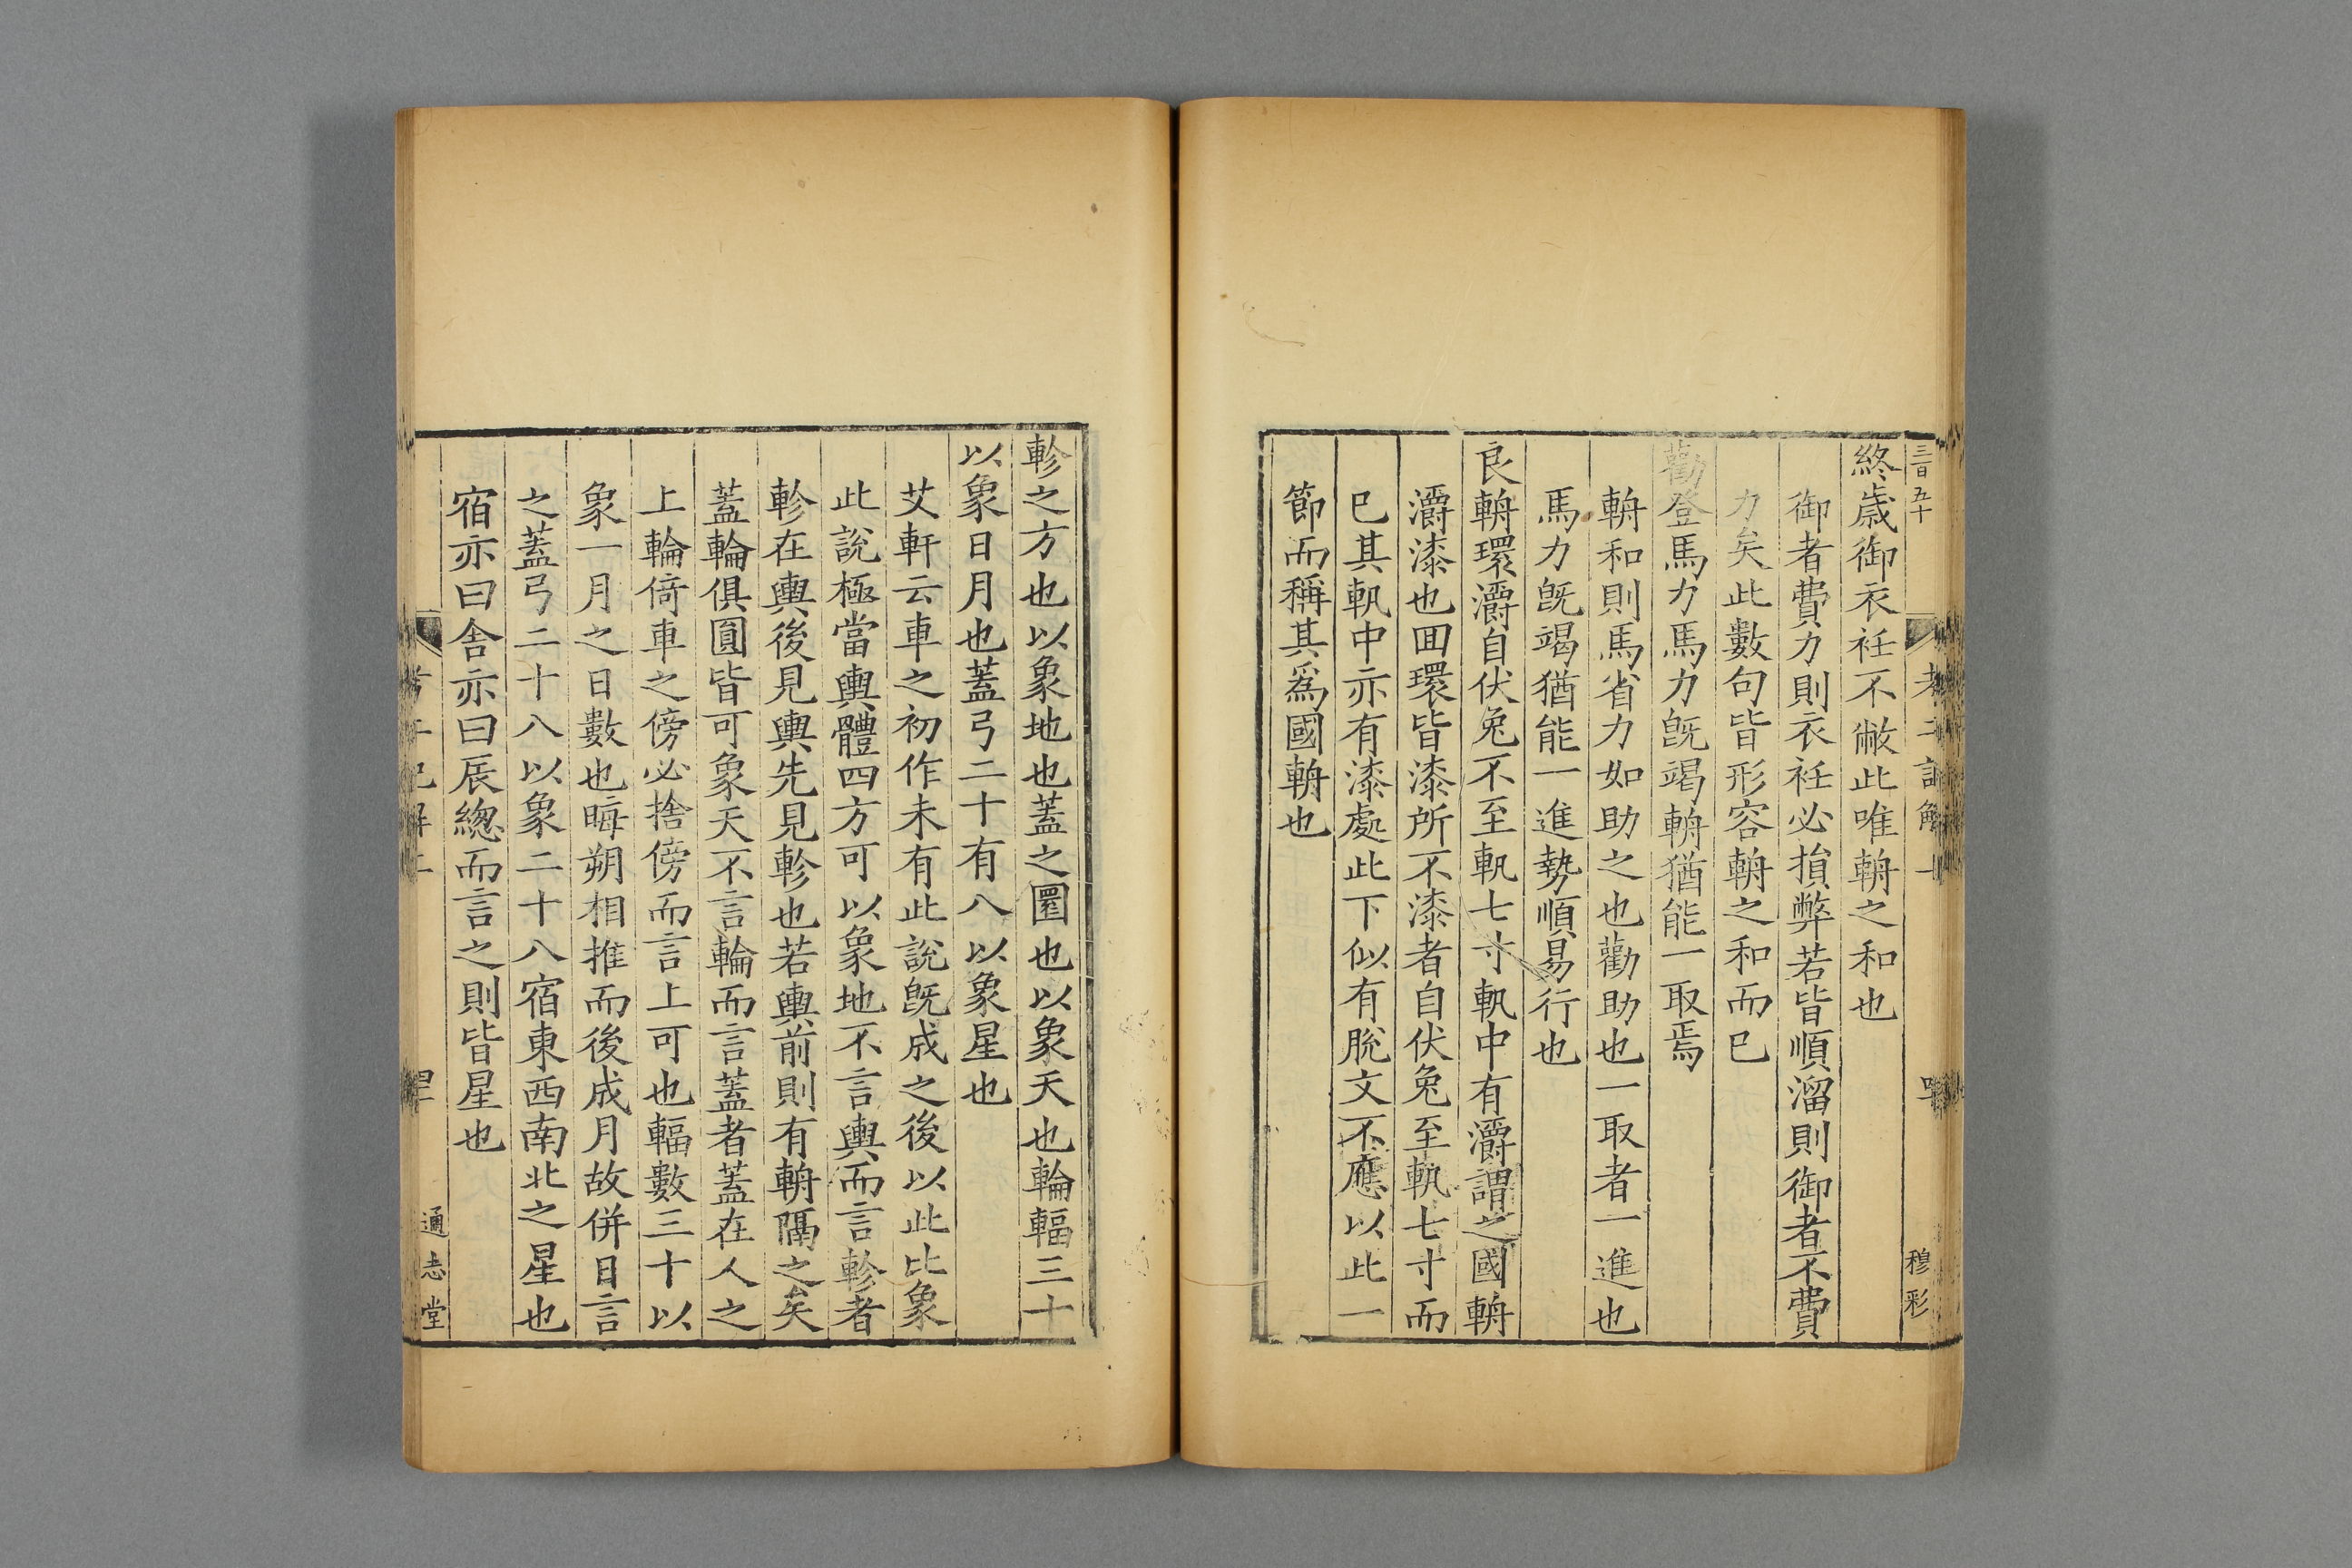 三百五十
穆彩
終歲御衣衽不敝此唯輈之和也
御者費力則衣衽必損弊若皆順溜則御者不費
力矣此數句皆形容輈之和而已
勸登馬力馬力旣竭輈猶能一取焉
輈和則馬省力如助之也勸助也一取者一進也
馬力旣竭猶能一進勢順易行也
良輈環灂自伏兔不至軓七寸軓中有灂謂之國輈
灂漆也囬環皆漆所不漆者自伏兔至軓七寸而
已其軓中亦有漆處此下似有脫文不應以此一
節而稱其爲國輈也
軫之方也以象地也蓋之圜也以象天也輪輻三十
以象日月也蓋弓二十有八以象星也
艾軒云車之初作未有此說旣成之後以此比象
此說極當輿體四方可以象地不言輿而言軫者
軫在輿後見輿先見軫也若輿前則有輈隔之矣
蓋輪俱圓皆可象天不言輪而言蓋者蓋在人之
上輪倚車之傍必捨傍而言上可也輻數三十以
象一月之日數也晦朔相推而後成月故併日言
之蓋弓二十八以象二十八宿東西南北之星也
宿亦曰舍亦曰辰總而言之則皆星也
通志堂